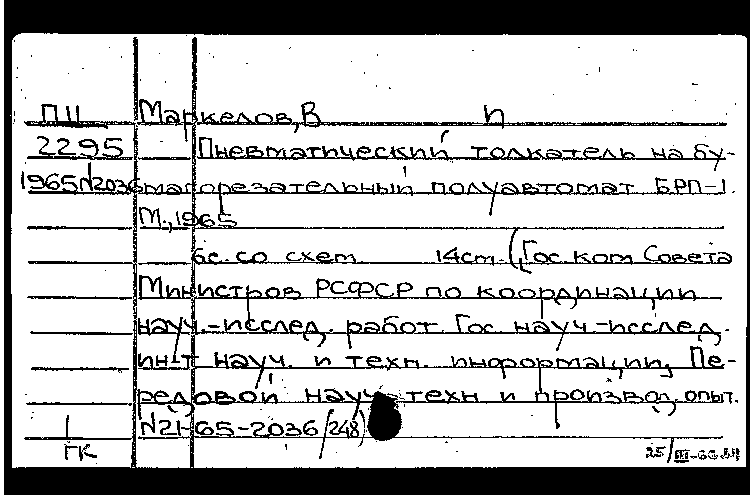 ПЦ Маркелов, В п
2295 Пневматический толкатель на бу-
1965 N2036 магорезательный полуавтомат БРП-1.
М., 1965
6с. со схем 14см. (Гос ком Совета
Министров РСФСР по координации
науч.-исслед. работ. Гос. науч.-исслед.
ин-т науч. и техн. информации, Пе-
редовой науч. техн и производ, опыт.
N21-65-2036/248)
ГК 25/III-66